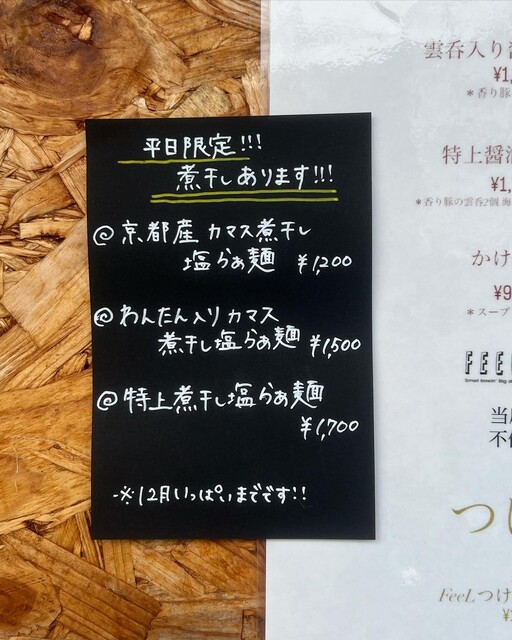 平日限定!!!
煮干しあります!!!
@京都産 カマス煮干し
塩らぁ麺 ¥1,200
@わんたん入りカマス
煮干し塩らぁ麺 ¥1,500
@特上煮干し塩らぁ麺
¥1,700
※12月いっぱいまでです!!
雲呑入り醤
¥1,
*香り豚
特上醤油
¥1,
*香り豚の雲呑2個,海
かけ
¥9
*スープ
FEE
当店
不
つけ
FeeLつけ